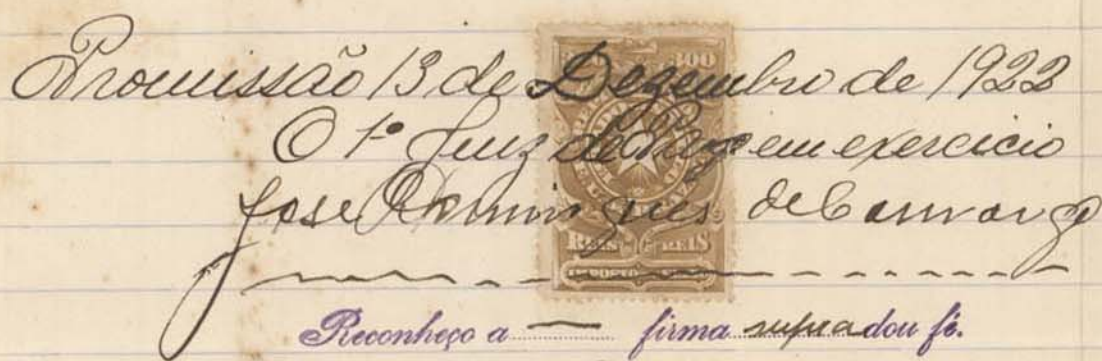 Promissão 13 de Dezembro de 1922
O 1º Juiz de Paz em exercicio
José Domingues de Camargo
300
REIS REIS
IMPOSTO
Reconheço a — firma supra dou fé.